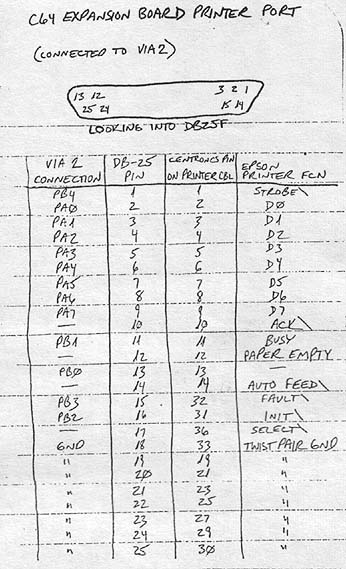 C64 EXPANSION BOARD PRINTER PORT
(CONNECTED TO VIA 2)
13 12 3 2 1
25 24 15 14
LOOKING INTO DB25F
VIA 2 CONNECTION DB-25 PIN CENTRONICS PIN ON PRINTER CBL EPSON PRINTER FCN
PB4 1 1 STROBE\
PA0 2 2 D0
PA1 3 3 D1
PA2 4 4 D2
PA3 5 5 D3
PA4 6 6 D4
PA5 7 7 D5
PA6 8 8 D6
PA7 9 9 D7
— 10 10 ACK\
PB1 11 11 BUSY
— 12 12 PAPER EMPTY
PB0 13 13 —
— 14 14 AUTO FEED\
PB3 15 32 FAULT\
PB2 16 31 INIT\
— 17 36 SELECT\
GND 18 33 TWIST PAIR GND
" 19 19 "
" 20 21 "
" 21 23 "
" 22 25 "
" 23 27 "
" 24 29 "
" 25 30 "